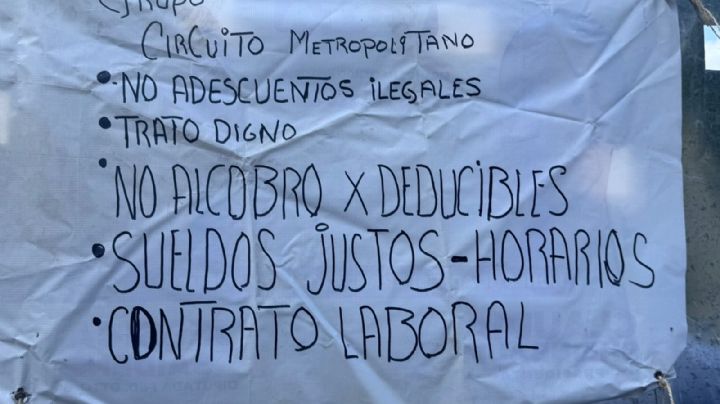 Grupo
CIRCUITO METROPOLITANO
• NO ADESCUENTOS ILEGALES
• TRATO DIGNO
• NO ALCOBRO X DEDUCIBLES
• SUELDOS JUSTOS - HORARIOS
• CONTRATO LABORAL